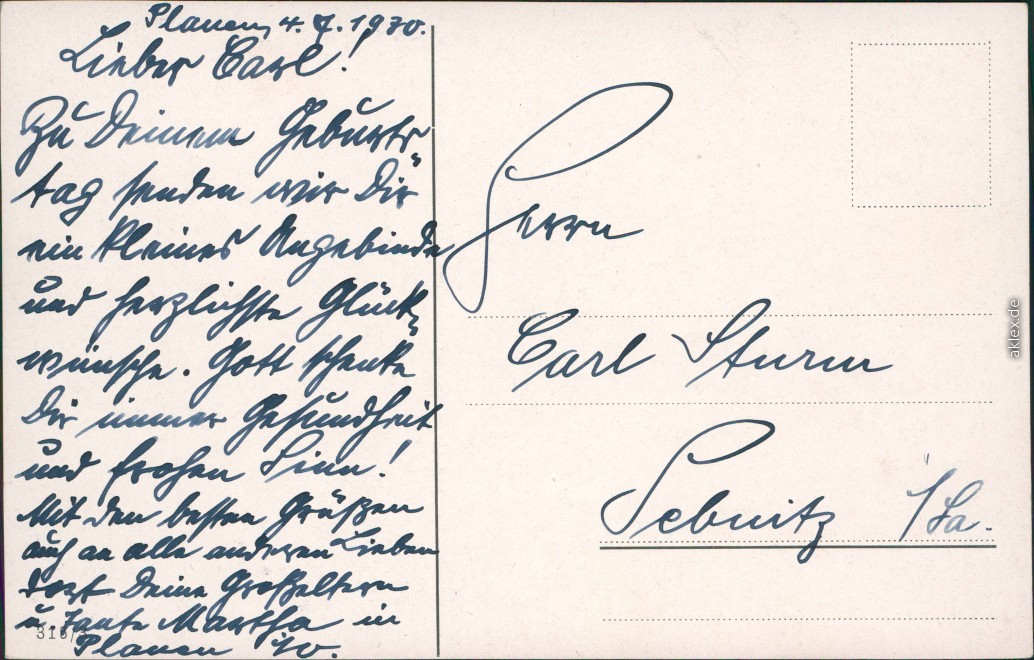 Plauen, 4. 7. 1930.
Lieber Carl!
Zu Deinem Geburts-
tag senden wir Dir
ein kleines Angebinde
und herzlichste Glück-
wünsche. Gott schenke
Dir immer Gesundheit
und frohen Sinn!
Mit den besten Grüßen
auch an alle anderen Lieben
dort Deine Großeltern
u. Tante Martha in
Plauen i/V.
Herrn
Carl Sturm
Sebnitz i/Sa.
aklex.de